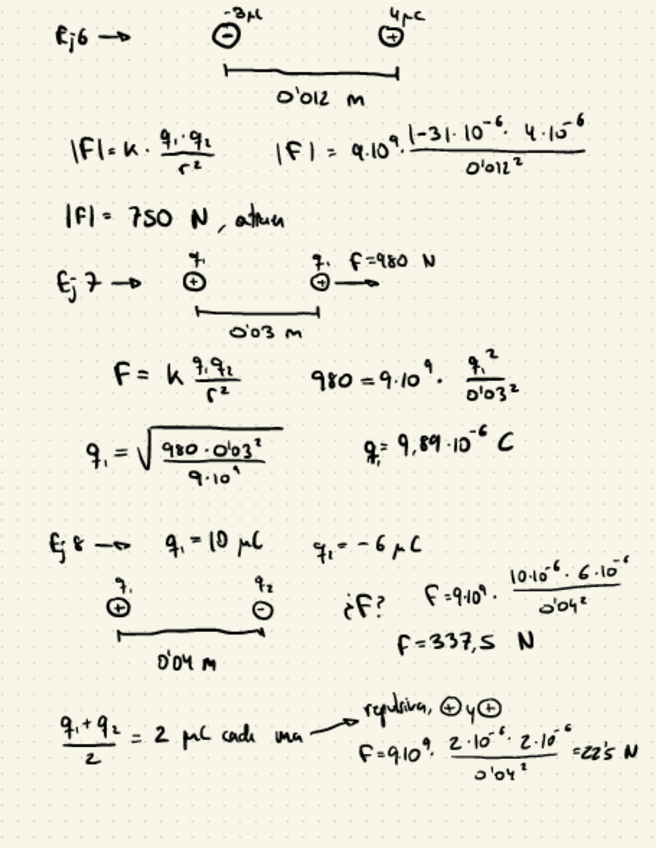 Ej 6 → -3μC 4μC
⊖ ⊕
0'012 m
|F| = k · q₁·q₂ / r² |F| = 9·10⁹ · |-3|·10⁻⁶ · 4·10⁻⁶ / 0'012²
|F| = 750 N, atraen
Ej 7 → q₁ ⊕ q₁ ⊕ → F=980 N
0'03 m
F = k q₁q₂ / r² 980 = 9·10⁹ · q₁² / 0'03²
q₁ = √(980·0'03² / 9·10⁹) q₁ = 9,89·10⁻⁶ C
Ej 8 → q₁ = 10 μC q₂ = -6 μC
q₁ ⊕ q₂ ⊖ ¿F? F=9·10⁹ · 10·10⁻⁶ · 6·10⁻⁶ / 0'04²
0'04 m F = 337,5 N
(q₁+q₂) / 2 = 2 μC cada una → repulsiva, ⊕ y ⊕
F=9·10⁹ · 2·10⁻⁶ · 2·10⁻⁶ / 0'04² = 22'5 N